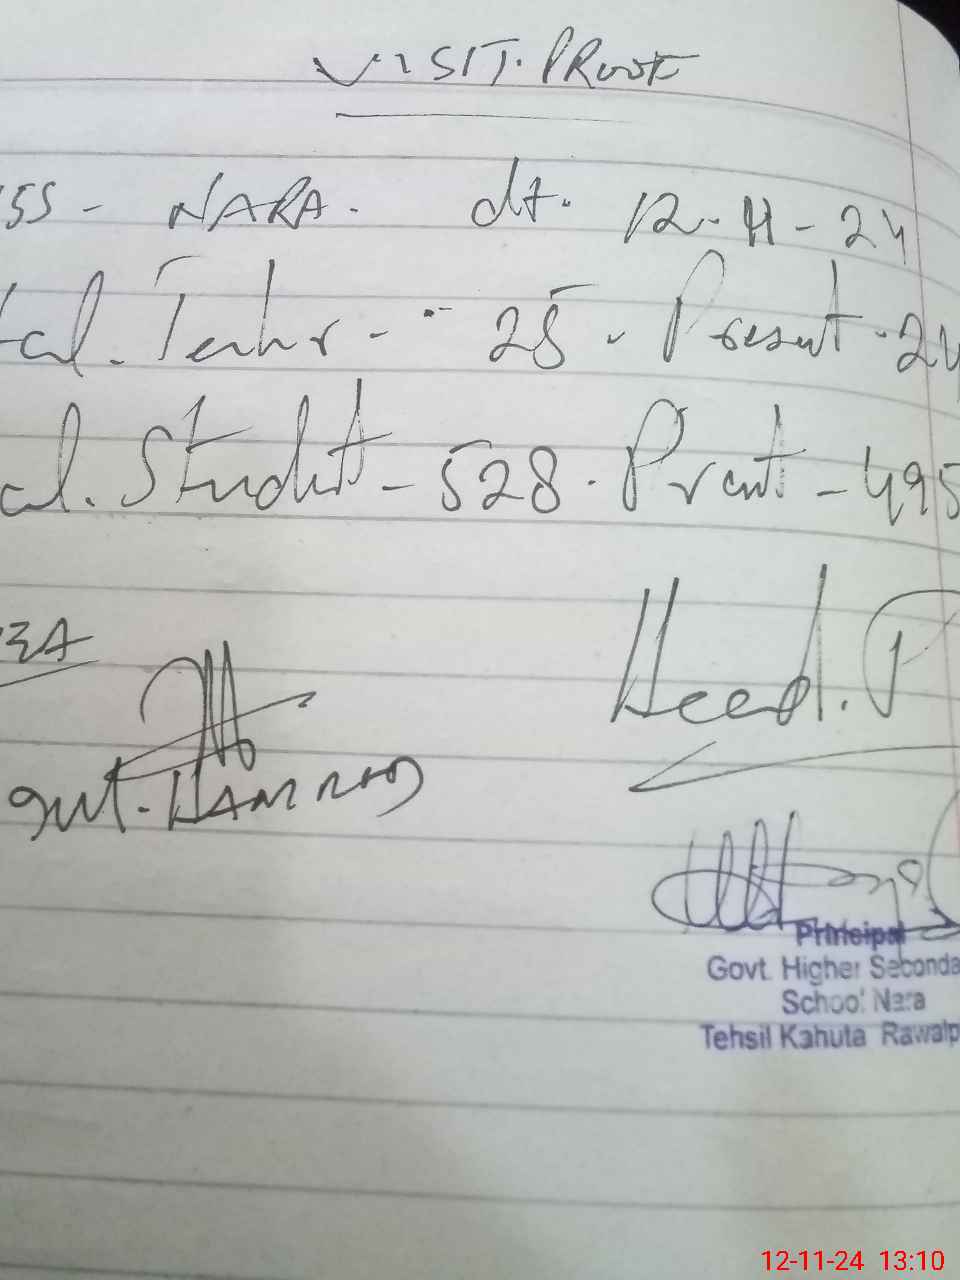 VISIT. PROOF
SS - NARA. dt. 12-11-24
tal. Teahr - 25 - Present - 24
al. Studnt - 528 - Prent - 495
EA
Head. P
Principal
Govt. Higher Seconda
School Nara
Tehsil Kahuta Rawalp
12-11-24 13:10